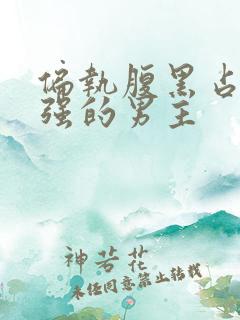 偏执腹黑占
强的男主
神苦花
未经同意禁止转载